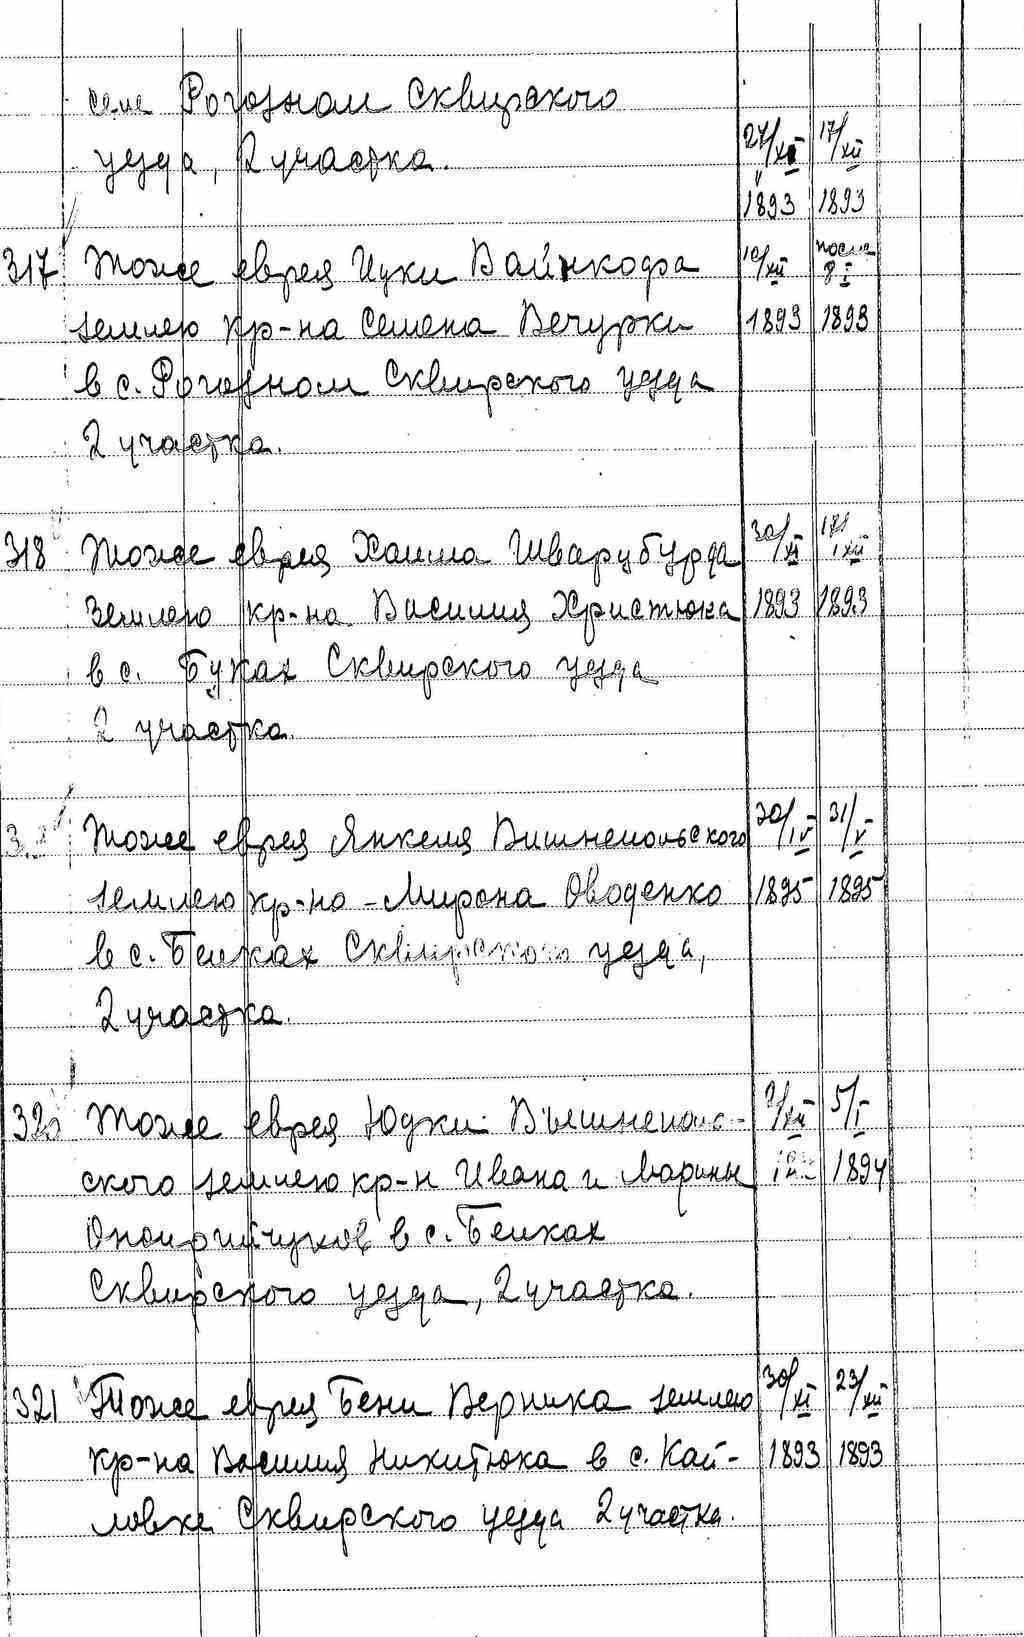 селе Рогозном Сквирского
уезда, 2 участка. 27/XI 17/XII
1893 1893
317 Тоже еврея Ицки Вайнкофа 10/XII после 8 I
землею кр-на Семена Вечурки 1893 1893
в с. Рогозном Сквирского уезда
2 участка.
318 Тоже еврея Хаима Шварцбурда 30/XI 17/XII
землею кр-на Василия Христюка 1893 1893
в с. Буках Сквирского уезда
2 участка.
Тоже еврея Янкеля Вишнепольского 30/IV 31/V
землею кр-на Мирона Оводенко 1895 1895
в с. Белках Сквирского уезда,
2 участка.
320 Тоже еврея Юдки Вышнеполь- /XII 5/I
ского землею кр-н Ивана и Марины 1894
в с. Белках
Сквирского уезда, 2 участка.
321 Тоже еврея Бени Верника землею 30/XI 23/XII
кр-на Василия Никитюка в с. Кай- 1893 1893
ловке Сквирского уезда 2 участка.